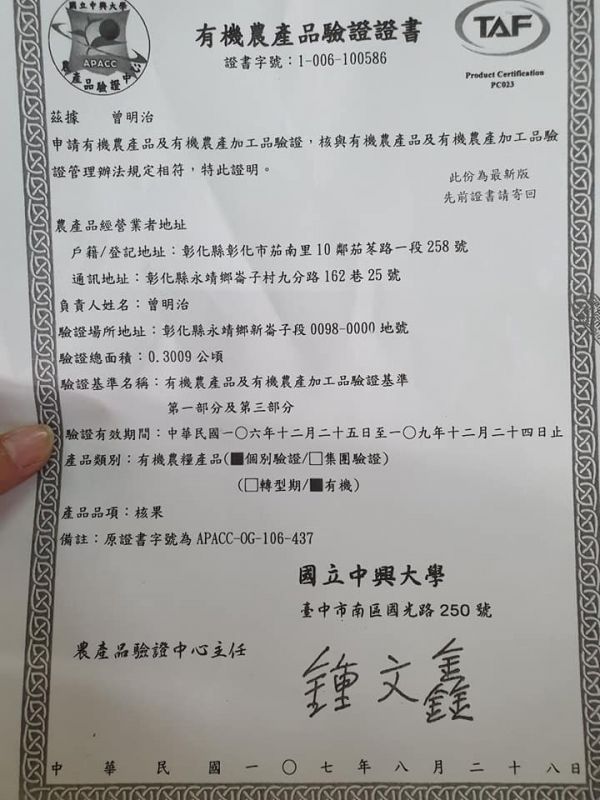 國立中興大學
APACC
農產品驗證中心
有機農產品驗證證書
證書字號：1-006-100586
TAF
Product Certification
PC023
茲據 曾明治
申請有機農產品及有機農產加工品驗證，核與有機農產品及有機農產加工品驗
證管理辦法規定相符，特此證明。
此份為最新版
先前證書請寄回
農產品經營業者地址
戶籍/登記地址：彰化縣彰化市茄南里10鄰茄苳路一段258號
通訊地址：彰化縣永靖鄉崙子村九分路162巷25號
負責人姓名：曾明治
驗證場所地址：彰化縣永靖鄉新崙子段0098-0000地號
驗證總面積：0.3009公頃
驗證基準名稱：有機農產品及有機農產加工品驗證基準
第一部分及第三部分
驗證有效期間：中華民國一〇六年十二月二十五日至一〇九年十二月二十四日止
產品類別：有機農糧產品(■個別驗證/□集團驗證)
(□轉型期/■有機)
產品品項：核果
備註：原證書字號為APACC-OG-106-437
國立中興大學
臺中市南區國光路250號
農產品驗證中心主任
鍾文鑫
中華民國一〇七年八月二十八日